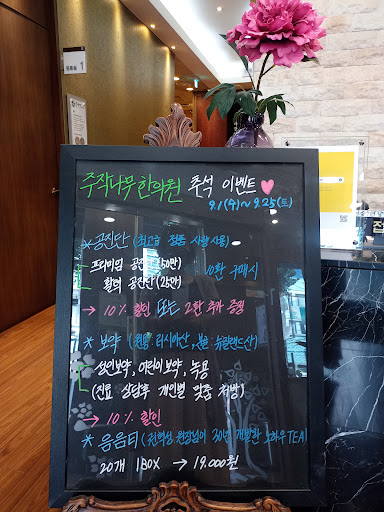 주작나무한의원 추석 이벤트
9.1(수)~9.25(토)
* 공진단 (최고급 정품 사향 사용)
프리미엄 공진단(50만)
활력 공진단(25만)
10환 구매시
→ 10% 할인 또는 2환 추가 증정
* 보약 (원용 러시아산, 분용 뉴질랜드산)
성인보약, 어린이보약, 녹용
(진료 상담후 개인별 맞춤 처방)
→ 10% 할인
* 음음티 (원장님이 30년 개발한 노하우 TEA)
20개 1BOX → 19,000원
1